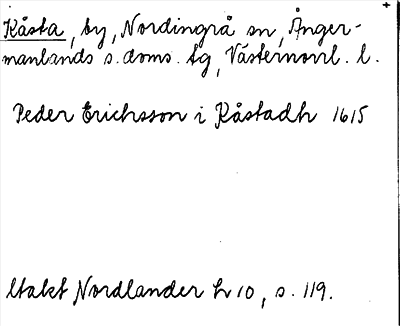 Kåsta, by, Nordingrå sn, Ånger-
manlands s. doms. tg, Västernorrl. l.
Peder Erichsson i Kåstadh 1615
Nordlander h 10, s. 119.